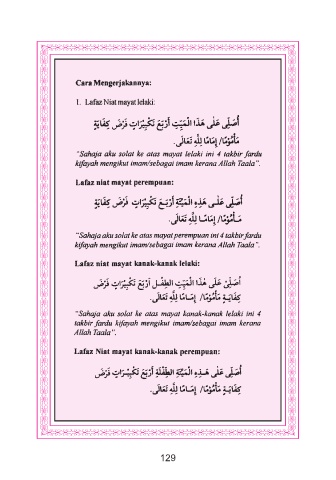 Cara Mengerjakannya:
1. Lafaz Niat mayat lelaki:
أُصَلِّى عَلَى هَذَا الْمَيِّتِ أَرْبَعَ تَكْبِيْرَاتٍ فَرْضَ كِفَايَةٍ
مَأْمُوْمًا/ إِمَامًا لِلَّهِ تَعَالَى.
"Sahaja aku solat ke atas mayat lelaki ini 4 takbir fardu
kifayah mengikut imam/sebagai imam kerana Allah Taala".
Lafaz niat mayat perempuan:
أُصَلِّى عَلَى هَذِهِ الْمَيِّتَةِ أَرْبَعَ تَكْبِيْرَاتٍ فَرْضَ كِفَايَةٍ
مَأْمُوْمًا/ إِمَامًا لِلَّهِ تَعَالَى.
"Sahaja aku solat ke atas mayat perempuan ini 4 takbir fardu
kifayah mengikut imam/sebagai imam kerana Allah Taala".
Lafaz niat mayat kanak-kanak lelaki:
أُصَلِّىْ عَلَى هَذَا الْمَيِّتِ الطِّفْلِ أَرْبَعَ تَكْبِيْرَاتٍ فَرْضَ
كِفَايَةٍ مَأْمُوْمًا/ إِمَامًا لِلَّهِ تَعَالَى.
"Sahaja aku solat ke atas mayat kanak-kanak lelaki ini 4
takbir fardu kifayah mengikut imam/sebagai imam kerana
Allah Taala".
Lafaz Niat mayat kanak-kanak perempuan:
أُصَلِّى عَلَى هَذِهِ الْمَيِّتَةِ الطِّفْلَةِ أَرْبَعَ تَكْبِيْرَاتٍ فَرْضَ
كِفَايَةٍ مَأْمُوْمًا/ إِمَامًا لِلَّهِ تَعَالَى.
129